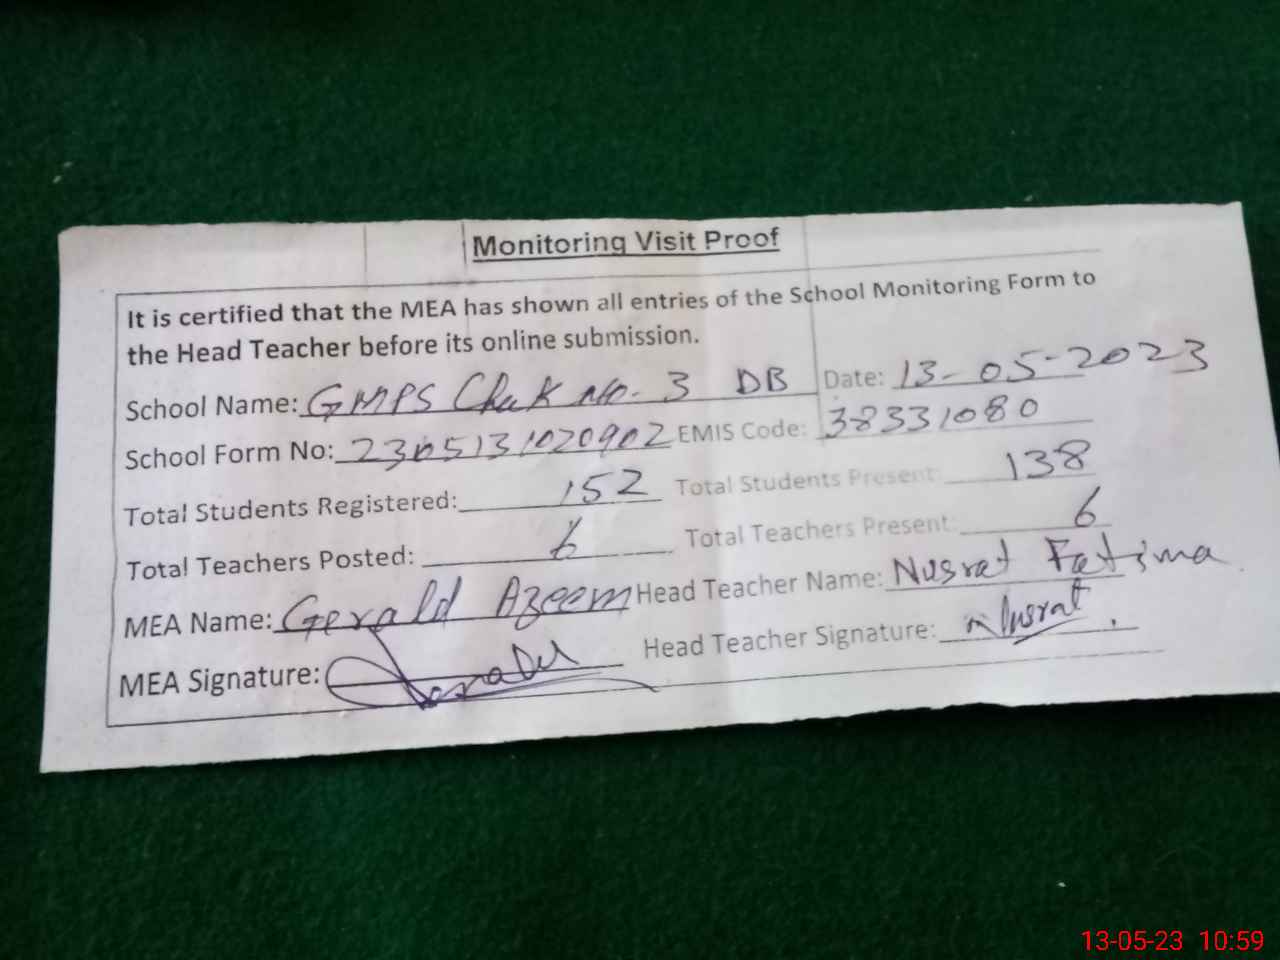 Monitoring Visit Proof
It is certified that the MEA has shown all entries of the School Monitoring Form to
the Head Teacher before its online submission.
School Name: GMPS Chak No. 3 DB Date: 13-05-2023
School Form No: 2305131020902 EMIS Code: 38331080
Total Students Registered: 152 Total Students Present: 138
Total Teachers Posted: 6 Total Teachers Present: 6
MEA Name: Gerald Azeem Head Teacher Name: Nusrat Fatima
MEA Signature: Head Teacher Signature: Nusrat
13-05-23 10:59